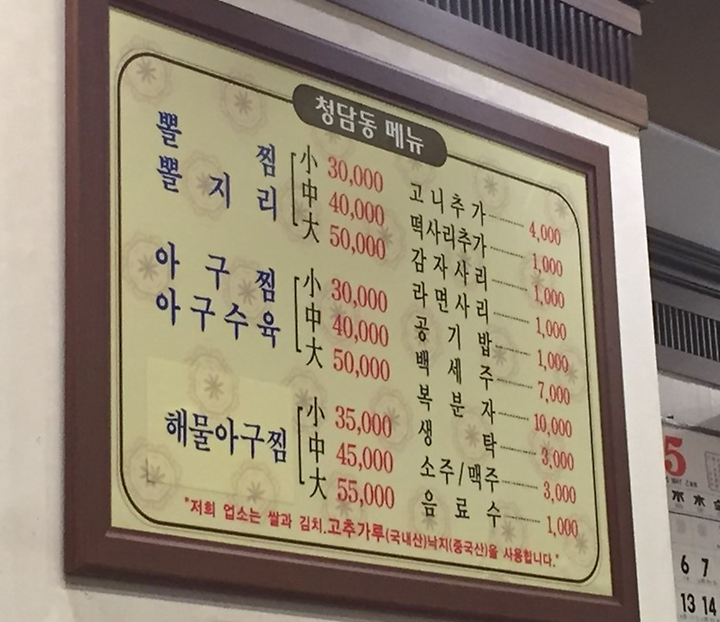 청담동 메뉴
뽈 찜
뽈 지 리
小 30,000
中 40,000
大 50,000
아 구 찜
아 구 수 육
小 30,000
中 40,000
大 50,000
해물아구찜
小 35,000
中 45,000
大 55,000
고 니 추 가 4,000
떡사리추가 1,000
감 자 사 리 1,000
라 면 사 리 1,000
공 기 밥 1,000
백 세 주 7,000
복 분 자 10,000
생 탁 3,000
소주/맥주 3,000
음 료 수 1,000
"저희 업소는 쌀과 김치.고추가루(국내산)낙지(중국산)을 사용합니다."
5
水 木 金
6 7
13 14